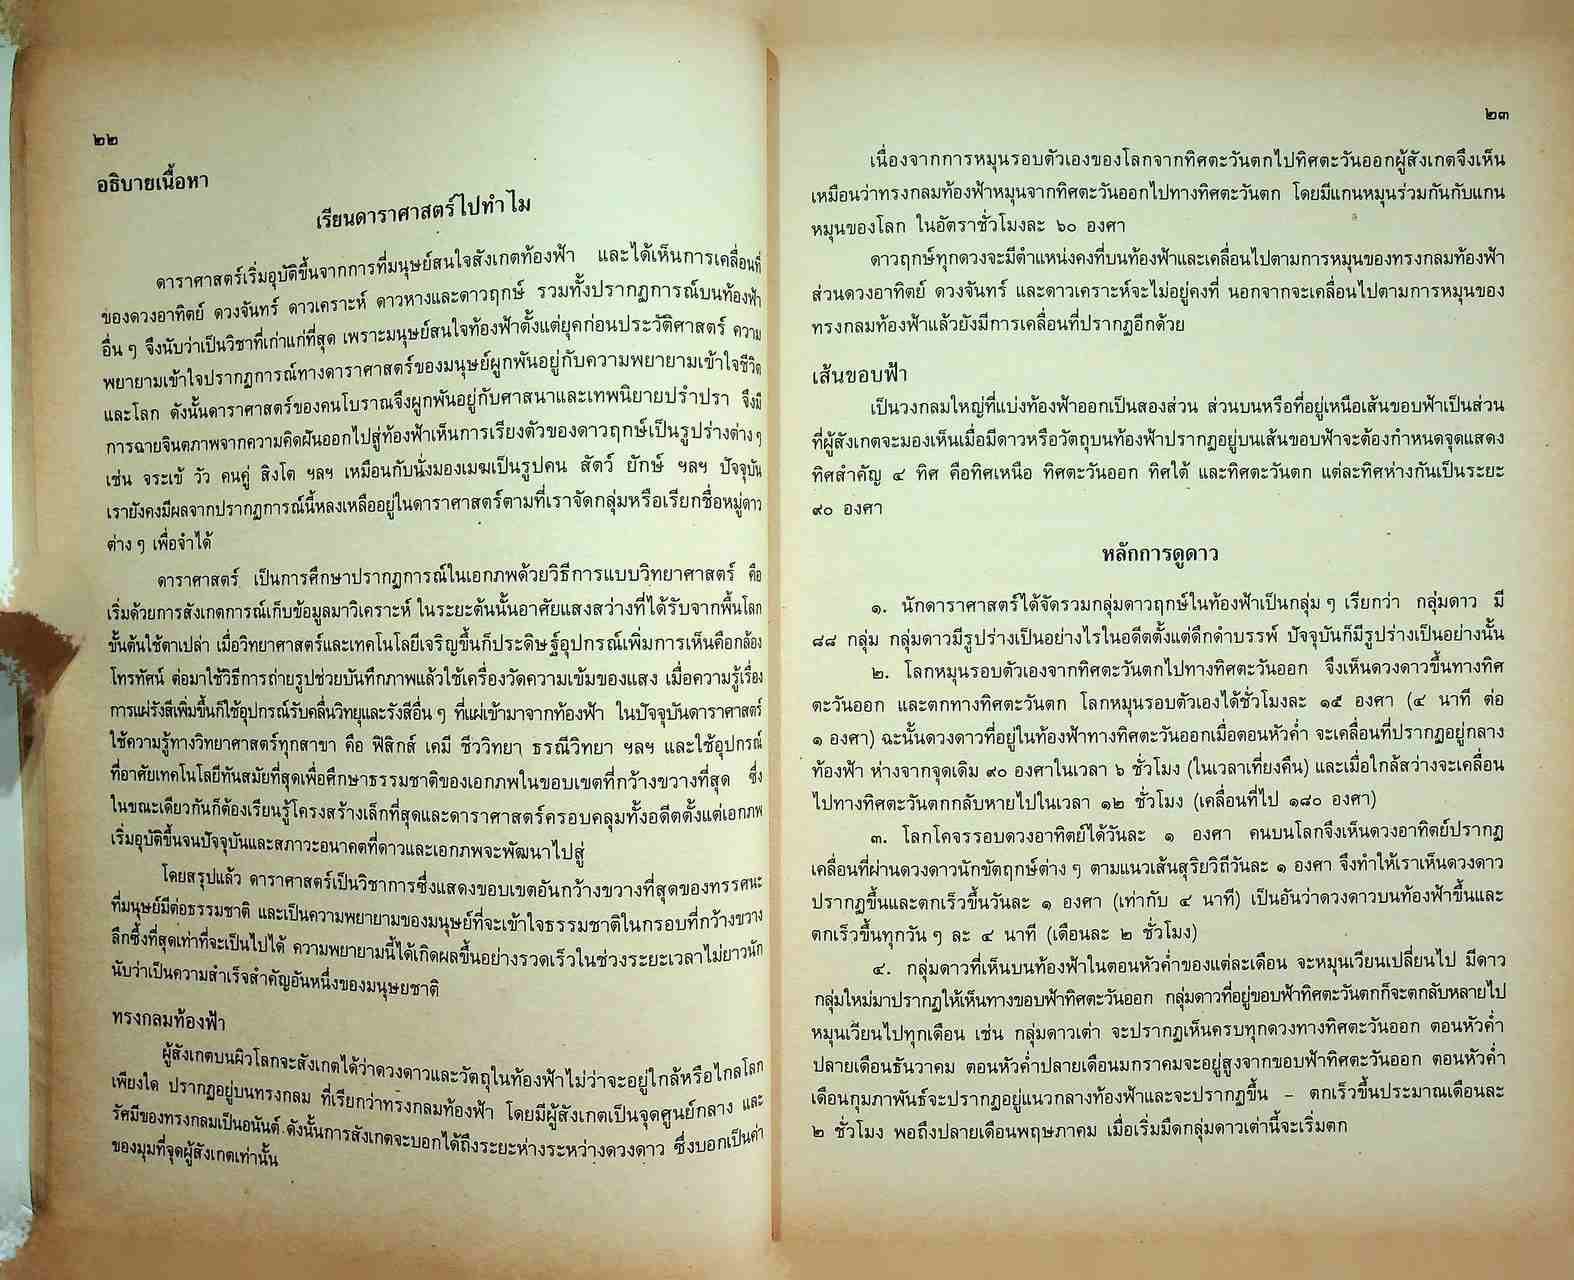 ๒๒
อธิบายเนื้อหา
เรียนดาราศาสตร์ไปทำไม
ดาราศาสตร์เริ่มอุบัติขึ้นจากการที่มนุษย์สนใจสังเกตท้องฟ้า และได้เห็นการเคลื่อนที่
ของดวงอาทิตย์ ดวงจันทร์ ดาวเคราะห์ ดาวหางและดาวฤกษ์ รวมทั้งปรากฏการณ์บนท้องฟ้า
อื่น ๆ จึงนับว่าเป็นวิชาที่เก่าแก่ที่สุด เพราะมนุษย์สนใจท้องฟ้าตั้งแต่ยุคก่อนประวัติศาสตร์ ความ
พยายามเข้าใจปรากฏการณ์ทางดาราศาสตร์ของมนุษย์ผูกพันอยู่กับความพยายามเข้าใจชีวิต
และโลก ดังนั้นดาราศาสตร์ของคนโบราณจึงผูกพันอยู่กับศาสนาและเทพนิยายปรำปรา จึงมี
การฉายจินตภาพจากความคิดฝันออกไปสู่ท้องฟ้าเห็นการเรียงตัวของดาวฤกษ์เป็นรูปร่างต่าง ๆ
เช่น จระเข้ วัว คนคู่ สิงโต ฯลฯ เหมือนกับนั่งมองเมฆเป็นรูปคน สัตว์ ยักษ์ ฯลฯ ปัจจุบัน
เรายังคงมีผลจากปรากฏการณ์นี้หลงเหลืออยู่ในดาราศาสตร์ตามที่เราจัดกลุ่มหรือเรียกชื่อหมู่ดาว
ต่าง ๆ เพื่อจำได้
ดาราศาสตร์ เป็นการศึกษาปรากฏการณ์ในเอกภพด้วยวิธีการแบบวิทยาศาสตร์ คือ
เริ่มด้วยการสังเกตการณ์เก็บข้อมูลมาวิเคราะห์ ในระยะต้นนั้นอาศัยแสงสว่างที่ได้รับจากพื้นโลก
ขั้นต้นใช้ตาเปล่า เมื่อวิทยาศาสตร์และเทคโนโลยีเจริญขึ้นก็ประดิษฐ์อุปกรณ์เพิ่มการเห็นคือกล้อง
โทรทัศน์ ต่อมาใช้วิธีการถ่ายรูปช่วยบันทึกภาพแล้วใช้เครื่องวัดความเข้มของแสง เมื่อความรู้เรื่อง
การแผ่รังสีเพิ่มขึ้นก็ใช้อุปกรณ์รับคลื่นวิทยุและรังสีอื่น ๆ ที่แผ่เข้ามาจากท้องฟ้า ในปัจจุบันดาราศาสตร์
ใช้ความรู้ทางวิทยาศาสตร์ทุกสาขา คือ ฟิสิกส์ เคมี ชีววิทยา ธรณีวิทยา ฯลฯ และใช้อุปกรณ์
ที่อาศัยเทคโนโลยีทันสมัยที่สุดเพื่อศึกษาธรรมชาติของเอกภพในขอบเขตที่กว้างขวางที่สุด ซึ่ง
ในขณะเดียวกันก็ต้องเรียนรู้โครงสร้างเล็กที่สุดและดาราศาสตร์ครอบคลุมทั้งอดีตตั้งแต่เอกภพ
เริ่มอุบัติขึ้นจนปัจจุบันและสภาวะอนาคตที่ดาวและเอกภพจะพัฒนาไปสู่
โดยสรุปแล้ว ดาราศาสตร์เป็นวิชาการซึ่งแสดงขอบเขตอันกว้างขวางที่สุดของทรรศนะ
ที่มนุษย์มีต่อธรรมชาติ และเป็นความพยายามของมนุษย์ที่จะเข้าใจธรรมชาติในกรอบที่กว้างขวาง
ลึกซึ้งที่สุดเท่าที่จะเป็นไปได้ ความพยายามนี้ได้เกิดผลขึ้นอย่างรวดเร็วในช่วงระยะเวลาไม่ยาวนัก
นับว่าเป็นความสำเร็จสำคัญอันหนึ่งของมนุษยชาติ
ทรงกลมท้องฟ้า
ผู้สังเกตบนผิวโลกจะสังเกตได้ว่าดวงดาวและวัตถุในท้องฟ้าไม่ว่าจะอยู่ใกล้หรือไกลโลก
เพียงใด ปรากฏอยู่บนทรงกลม ที่เรียกว่าทรงกลมท้องฟ้า โดยมีผู้สังเกตเป็นจุดศูนย์กลาง และ
รัศมีของทรงกลมเป็นอนันต์ ดังนั้นการสังเกตจะบอกได้ถึงระยะห่างระหว่างดวงดาว ซึ่งบอกเป็นค่า
ของมุมที่จุดผู้สังเกตเท่านั้น
๒๓
เนื่องจากการหมุนรอบตัวเองของโลกจากทิศตะวันตกไปทิศตะวันออกผู้สังเกตจึงเห็น
เหมือนว่าทรงกลมท้องฟ้าหมุนจากทิศตะวันออกไปทางทิศตะวันตก โดยมีแกนหมุนร่วมกันกับแกน
หมุนของโลก ในอัตราชั่วโมงละ ๖๐ องศา
ดาวฤกษ์ทุกดวงจะมีตำแหน่งคงที่บนท้องฟ้าและเคลื่อนไปตามการหมุนของทรงกลมท้องฟ้า
ส่วนดวงอาทิตย์ ดวงจันทร์ และดาวเคราะห์จะไม่อยู่คงที่ นอกจากจะเคลื่อนไปตามการหมุนของ
ทรงกลมท้องฟ้าแล้วยังมีการเคลื่อนที่ปรากฏอีกด้วย
เส้นขอบฟ้า
เป็นวงกลมใหญ่ที่แบ่งท้องฟ้าออกเป็นสองส่วน ส่วนบนหรือที่อยู่เหนือเส้นขอบฟ้าเป็นส่วน
ที่ผู้สังเกตจะมองเห็นเมื่อมีดาวหรือวัตถุบนท้องฟ้าปรากฏอยู่บนเส้นขอบฟ้าจะต้องกำหนดจุดแสดง
ทิศสำคัญ ๔ ทิศ คือทิศเหนือ ทิศตะวันออก ทิศใต้ และทิศตะวันตก แต่ละทิศห่างกันเป็นระยะ
๙๐ องศา
หลักการดูดาว
๑. นักดาราศาสตร์ได้จัดรวมกลุ่มดาวฤกษ์ในท้องฟ้าเป็นกลุ่ม ๆ เรียกว่า กลุ่มดาว มี
๘๘ กลุ่ม กลุ่มดาวมีรูปร่างเป็นอย่างไรในอดีตตั้งแต่ดึกดำบรรพ์ ปัจจุบันก็มีรูปร่างเป็นอย่างนั้น
๒. โลกหมุนรอบตัวเองจากทิศตะวันตกไปทางทิศตะวันออก จึงเห็นดวงดาวขึ้นทางทิศ
ตะวันออก และตกทางทิศตะวันตก โลกหมุนรอบตัวเองได้ชั่วโมงละ ๑๕ องศา (๔ นาที ต่อ
๑ องศา) ฉะนั้นดวงดาวที่อยู่ในท้องฟ้าทางทิศตะวันออกเมื่อตอนหัวค่ำ จะเคลื่อนที่ปรากฏอยู่กลาง
ท้องฟ้า ห่างจากจุดเดิม ๙๐ องศาในเวลา ๖ ชั่วโมง (ในเวลาเที่ยงคืน) และเมื่อใกล้สว่างจะเคลื่อน
ไปทางทิศตะวันตกกลับหายไปในเวลา ๑๒ ชั่วโมง (เคลื่อนที่ไป ๑๘๐ องศา)
๓. โลกโคจรรอบดวงอาทิตย์ได้วันละ ๑ องศา คนบนโลกจึงเห็นดวงอาทิตย์ปรากฏ
เคลื่อนที่ผ่านดวงดาวนักขัตฤกษ์ต่าง ๆ ตามแนวเส้นสุริยวิถีวันละ ๑ องศา จึงทำให้เราเห็นดวงดาว
ปรากฏขึ้นและตกเร็วขึ้นวันละ ๑ องศา (เท่ากับ ๔ นาที) เป็นอันว่าดวงดาวบนท้องฟ้าขึ้นและ
ตกเร็วขึ้นทุกวัน ๆ ละ ๔ นาที (เดือนละ ๒ ชั่วโมง)
๔. กลุ่มดาวที่เห็นบนท้องฟ้าในตอนหัวค่ำของแต่ละเดือน จะหมุนเวียนเปลี่ยนไป มีดาว
กลุ่มใหม่มาปรากฏให้เห็นทางขอบฟ้าทิศตะวันออก กลุ่มดาวที่อยู่ขอบฟ้าทิศตะวันตกก็จะตกลับหลายไป
หมุนเวียนไปทุกเดือน เช่น กลุ่มดาวเต่า จะปรากฏเห็นครบทุกดวงทางทิศตะวันออก ตอนหัวค่ำ
ปลายเดือนธันวาคม ตอนหัวค่ำปลายเดือนมกราคมจะอยู่สูงจากขอบฟ้าทิศตะวันออก ตอนหัวค่ำ
เดือนกุมภาพันธ์จะปรากฏอยู่แนวกลางท้องฟ้าและจะปรากฏขึ้น – ตกเร็วขึ้นประมาณเดือนละ
๒ ชั่วโมง พอถึงปลายเดือนพฤษภาคม เมื่อเริ่มมืดกลุ่มดาวเต่านี้จะเริ่มตก